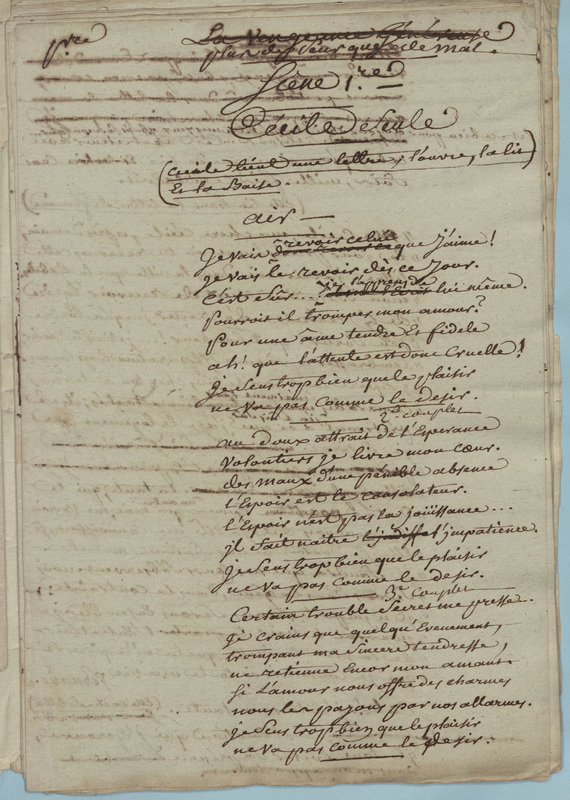 pre
La Vengeance Généreuse
plus de peur que de mal.
Scène 1.re
Cécile Seule
(Cecile tient une lettre, l'ouvre, la lit
Et la Baise.
air
Je vais revoir celui que j'aime!
Je vais le revoir dès ce jour.
C'est sûr... je l'apprends de lui même.
Pourroit il tromper mon amour?
Pour une âme tendre Et fidele
ah! que l'attente est donc Cruelle!
Je Sens trop bien que le plaisir
ne Va pas comme le desir.
2.e couplet
au doux attrait de l'Esperance
Volontiers je livre mon cœur.
des maux d'une pénible absence
l'Espoir est le consolateur.
l'Espoir n'est pas la jouissance...
il fait naitre l'impatience.
Je Sens trop bien que le plaisir
ne Va pas comme le desir.
3.e couplet
Certain trouble Secret me presse...
Je crains que quelqu'Evenement,
trompant ma Sincere tendresse,
ne retienne Encor mon amant.
Si L'amour nous offre des charmes
nous les payons par nos allarmes.
je Sens trop bien que le plaisir
ne va pas comme le desir.